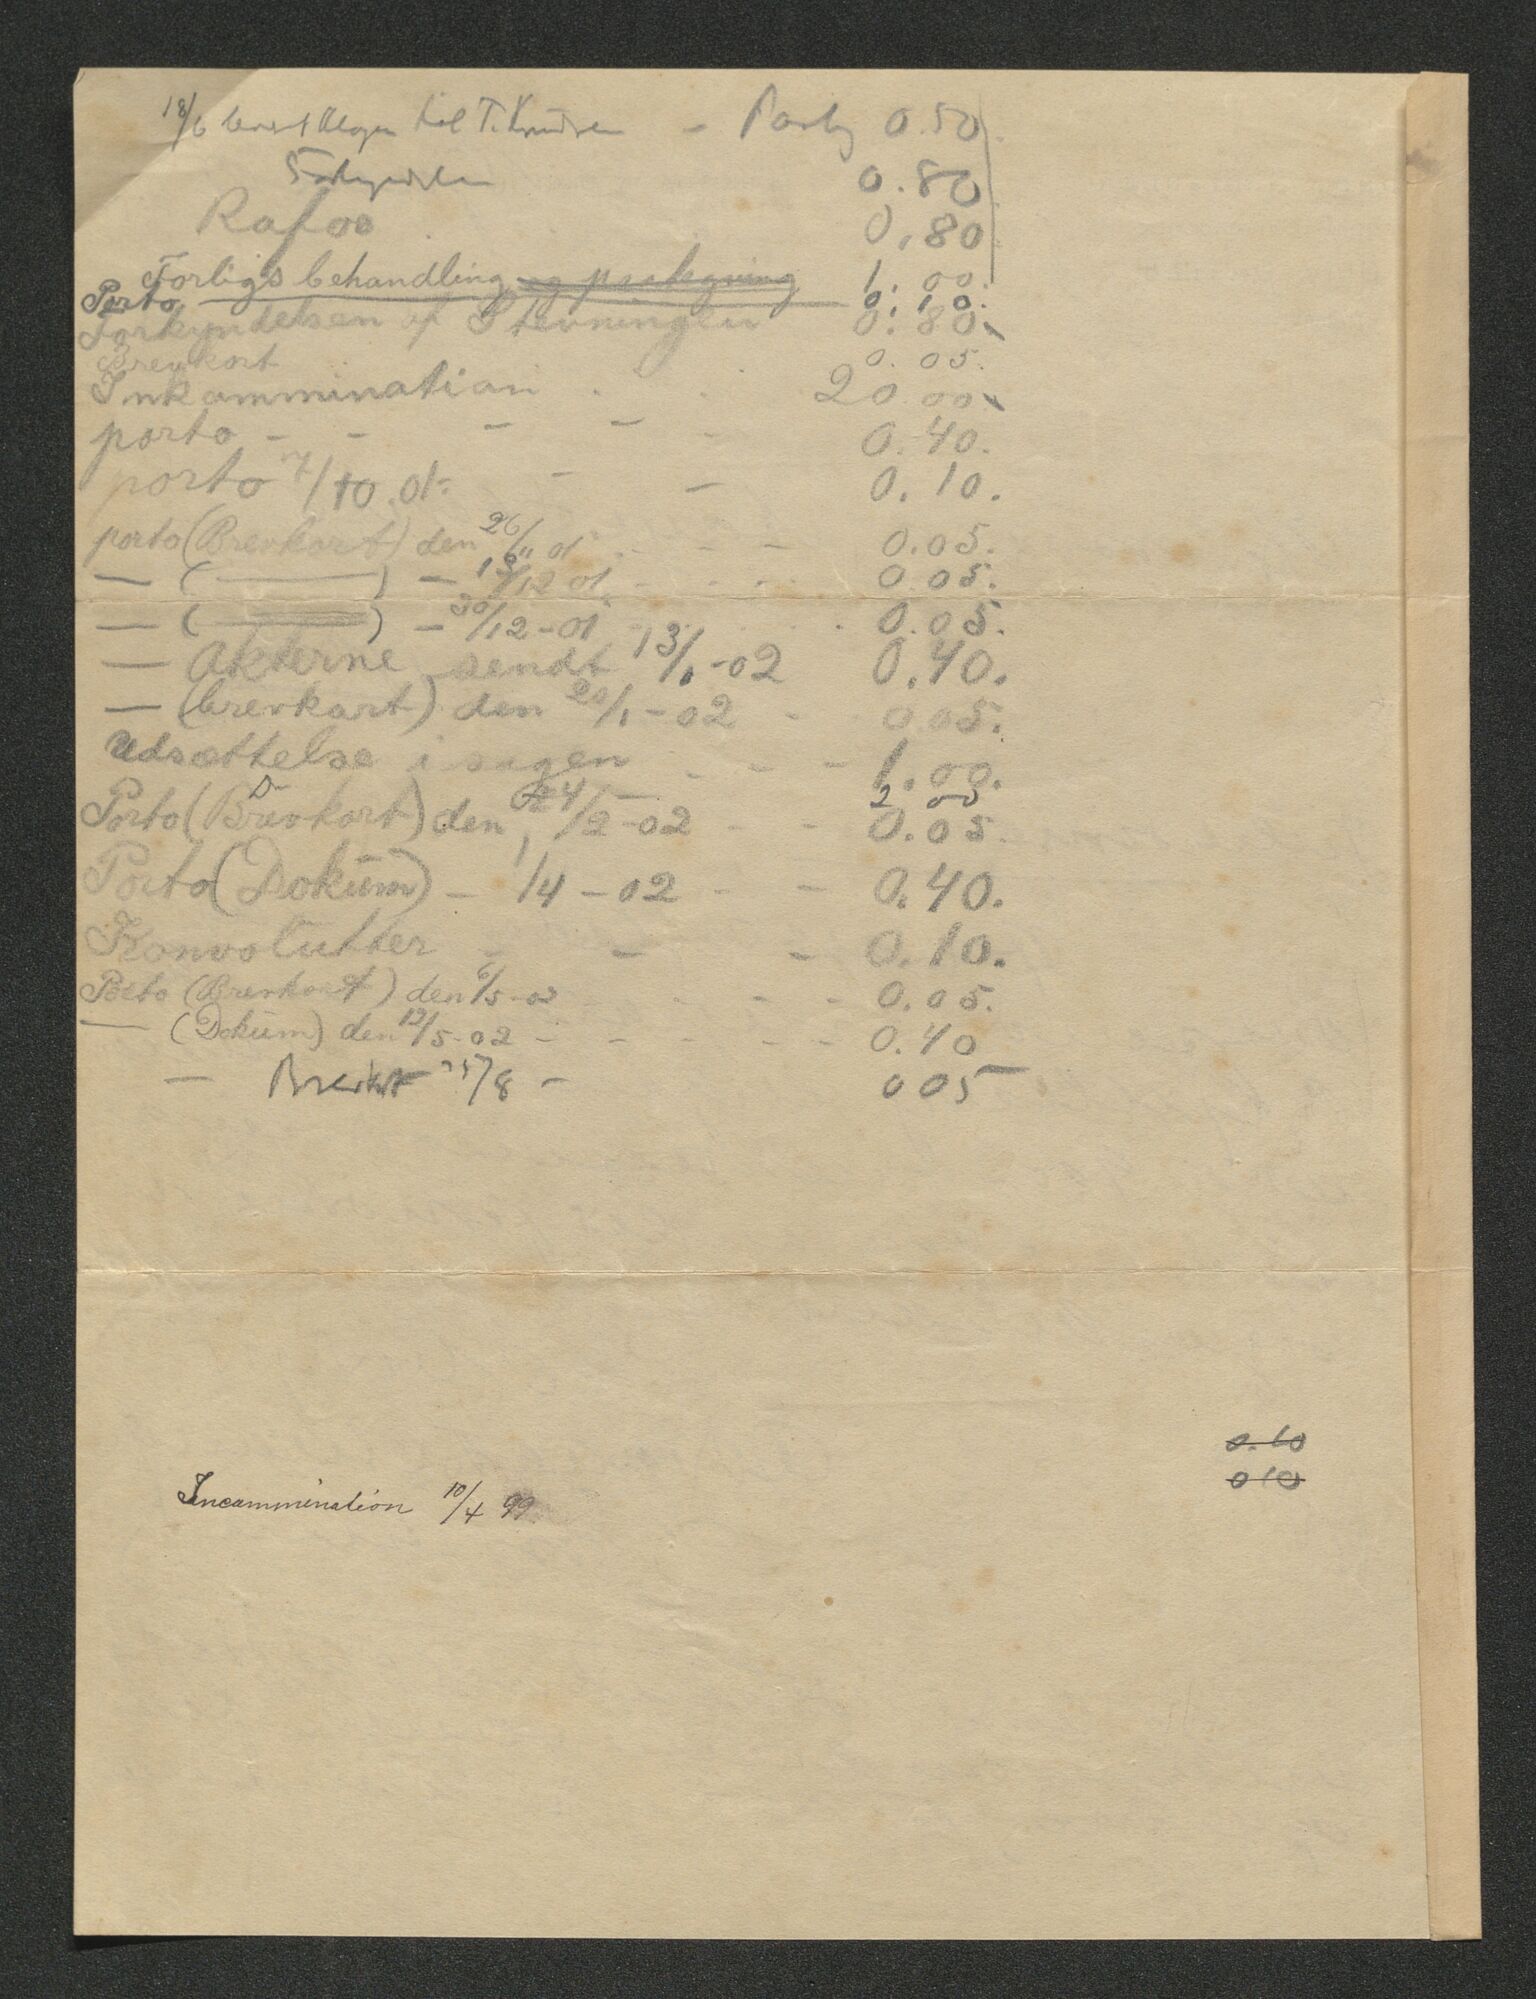 18/6 til T. Knudsen – Porto 0.50.
0.80
0,80
Forligsbehandling og 1.00.
Porto 0.10.
Forkyndelsen af Stevningen 0.80.
Brevkort 0.05.
Inkammination . . 20.00
porto – – – – – 0.40.
porto /10.01. – – 0.10.
porto (Brevkort) den 26/11 01 – – – 0.05.
— ( —— ) – 18/12 01. – . . 0.05.
— ( —— ) – 30/12 – 01 – . . . 0.05.
— Akterne sendt 13/1 – 02 0.40.
— (brevkort) den 20/1 – 02 – 0.05.
Udsættelse i sagen – – – – 1.00.
2 00
Porto (Brevkort) den 24/2 – 02 – – 0.05.
Porto (Dokum) – 1/4 – 02 – – 0.40.
Konvolutter – – – 0.10.
Porto (Brevkort) den 6/5 – 02 – – – – 0.05.
— (Dokum) den 12/5 – 02 – – – – – 0.40
– Brevkort 25/8 – 0 05
0.10
0 10
Incammination 10/4 99.